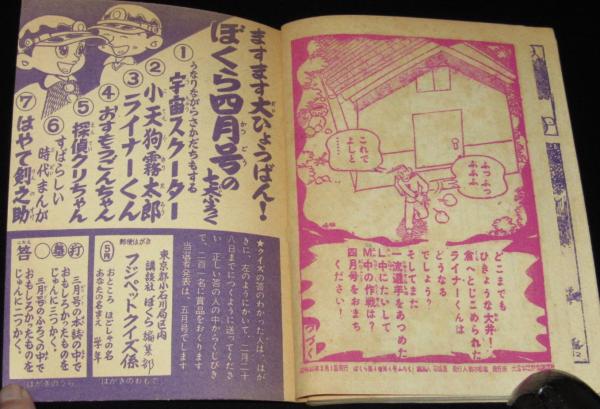 これで
よしと
……
ふっふっ
ふふふ
……
どこまでも
ひきょうな大井!
倉へとじこめられた
ライナーくんは
どうなる
でしょう?
そしてまた
一流選手をあつめた
L中にたいして
M中の作戦は?
四月号をおまち
ください!
つづく
ますます大ひょうばん!
ぼくら四月号の七大ふろく
①うなりながらさかだちもする
宇宙スクーター
②小天狗霧太郎
③ライナーくん
④おすもうごんちゃん
⑤探偵クリちゃん
⑥すばらしい
時代まんが
⑦はやて剣之助
★クイズの答のわかった人は、はが
きに、左のようにかいて、二月二十
八日までにつくように送ってくださ
い。正しい答の人の中からくじびき
で、二百一名に賞品をおくります。
当選者発表は、五月号でします
郵便はがき
5円
東京都小石川局区内
講談社 ぼくら編集部
フジペットクイズ係
おところ ほごしゃの名
あなたの名まえ 学年
はがきのおもて
答
三月号の本誌の中で
おもしろかったものを
じゅんに二つかく。
三月号のふろくの中で
おもしろかったものを
じゅんに二つかく。
はがきのうら